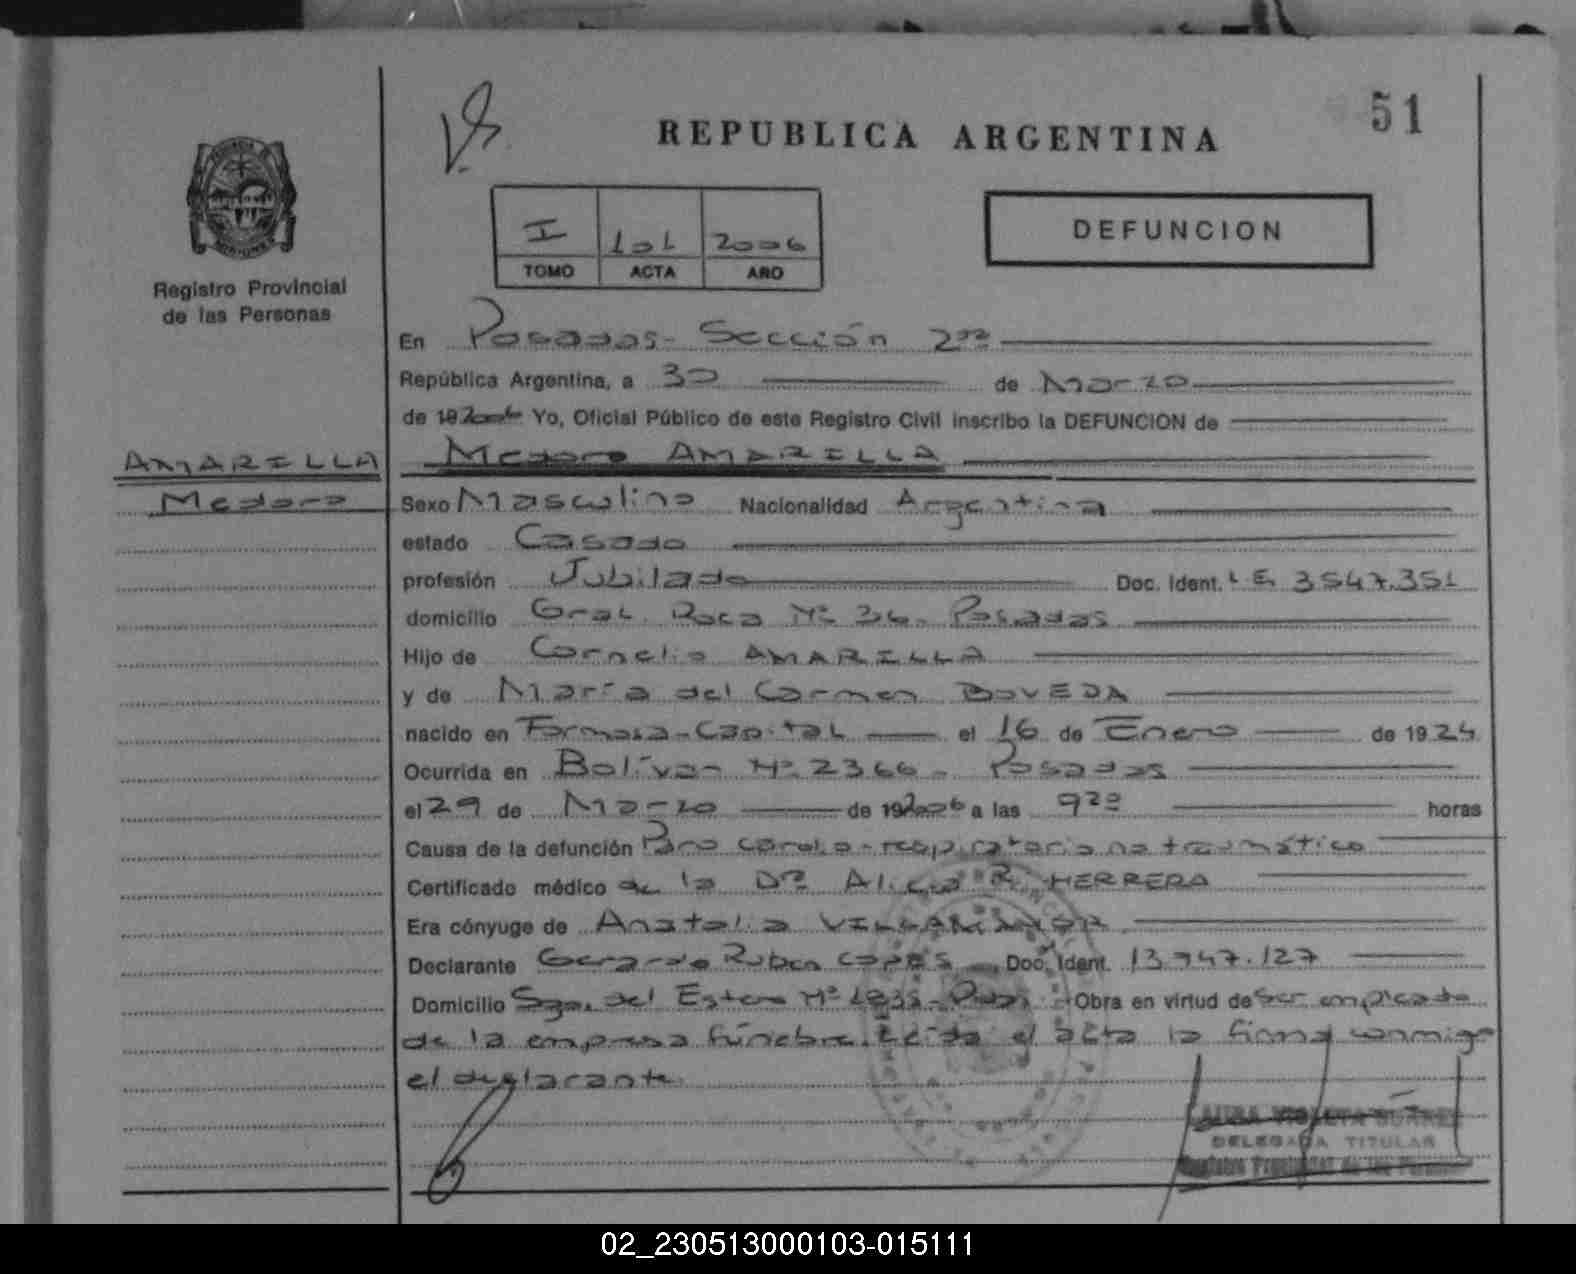 51
REPUBLICA ARGENTINA
I 101 2006
TOMO ACTA AÑO
DEFUNCION
Registro Provincial
de las Personas
En Posadas - Sección 2da
República Argentina, a 30 de Marzo
de 19 2006 Yo, Oficial Público de este Registro Civil inscribo la DEFUNCION de
AMARILLA
Medoro AMARILLA
Medoro
Sexo Masculino Nacionalidad Argentina
estado Casado
profesión Jubilado Doc. Ident. L.E. 3547.351
domicilio Gral. Roca Nº 36. Posadas
Hijo de Cornelio AMARILLA
y de María del Carmen BOVEDA
nacido en Formosa - Capital el 16 de Enero de 1924
Ocurrida en Bolívar Nº 2366 - Posadas
el 29 de Marzo de 19 2006 a las 9 horas
Causa de la defunción Paro cardio-respiratorio no traumático
Certificado médico de la Dra Alicia R. HERRERA
Era cónyuge de Anatalia
Declarante Gerardo Ruben COPES Doc. Ident. 13.947.127
Domicilio Sgo. del Estero Nº Obra en virtud de ser empleado
de la empresa fúnebre. Leída el acta la firma conmigo
el declarante.
LAURA VIOLETA SUAREZ
DELEGADA TITULAR
Registro Provincial de las Personas
02_230513000103-015111